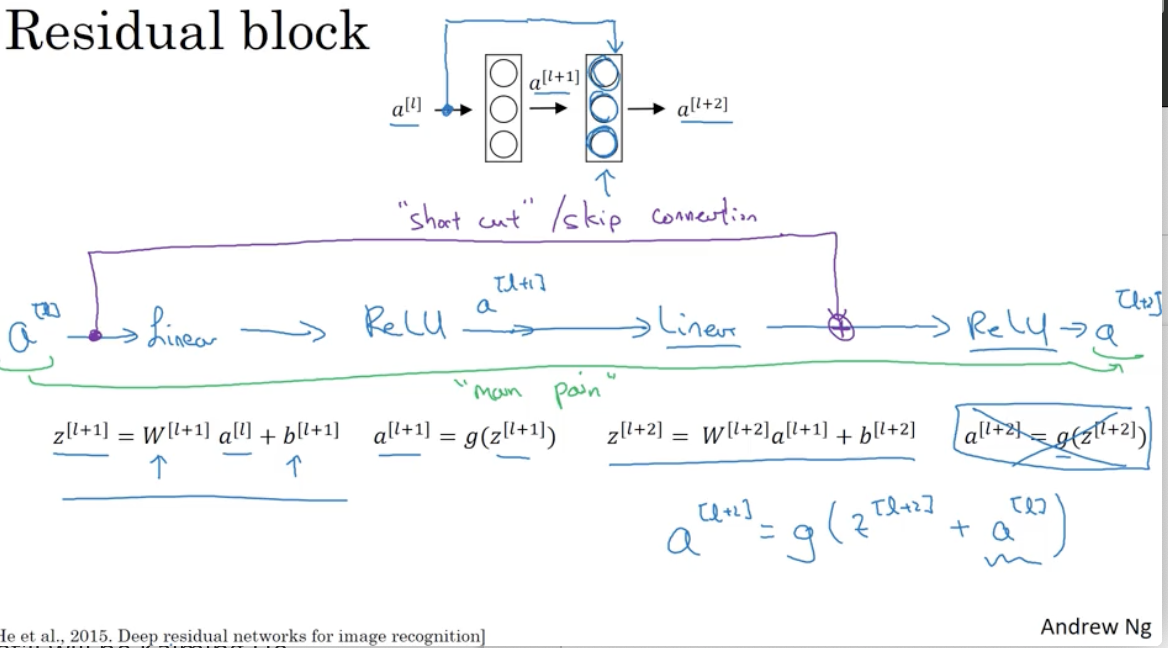 Residual block
a[l] a[l+1] a[l+2]
"short cut" / skip connection
a[l] → Linear → ReLU a[l+1] → Linear → ReLU → a[l+2]
"main path"
z[l+1] = W[l+1] a[l] + b[l+1] a[l+1] = g(z[l+1]) z[l+2] = W[l+2]a[l+1] + b[l+2] a[l+2] = g(z[l+2])
a[l+2] = g(z[l+2] + a[l])
He et al., 2015. Deep residual networks for image recognition]
Andrew Ng